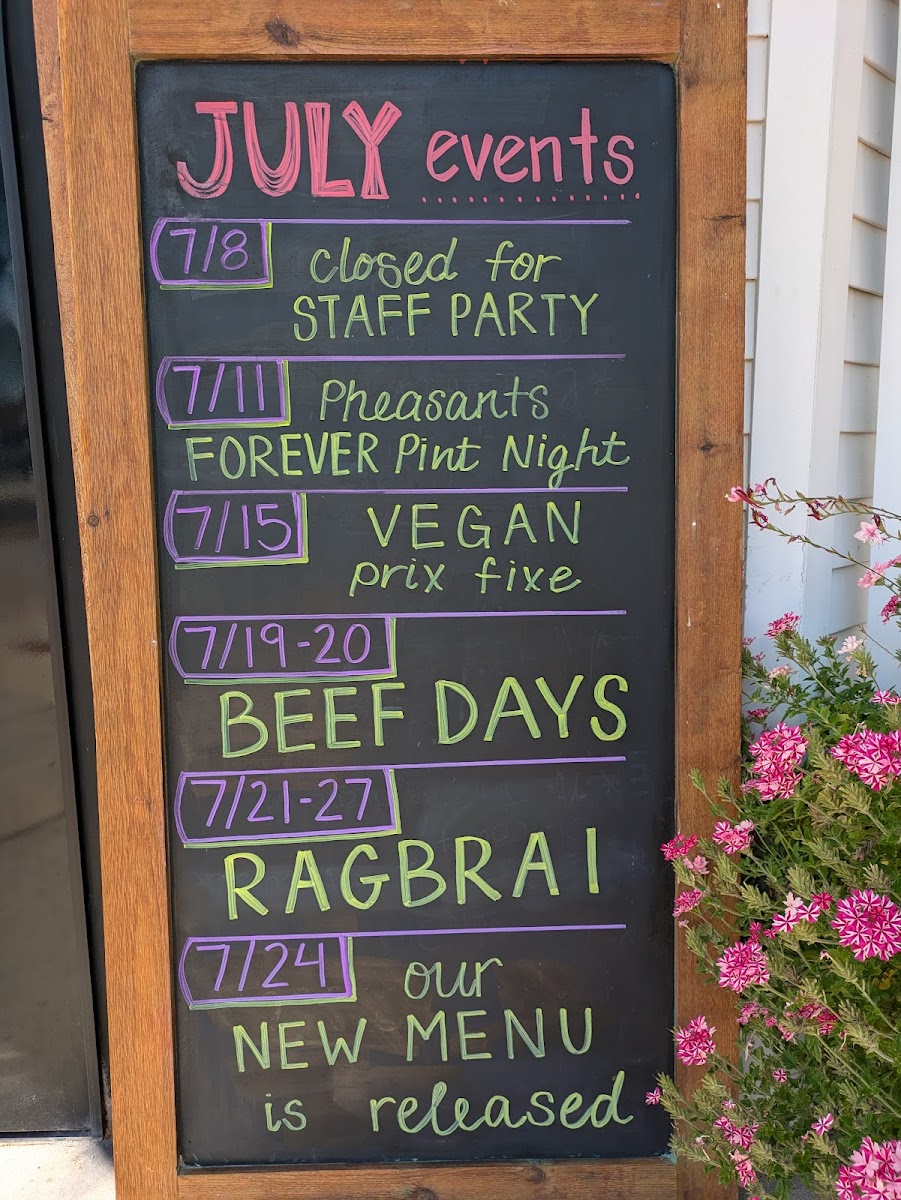 JULY events
7/8 closed for
STAFF PARTY
7/11 Pheasants
FOREVER Pint Night
7/15 VEGAN
prix fixe
7/19-20
BEEF DAYS
7/21-27
RAGBRAI
7/24 our
NEW MENU
is released